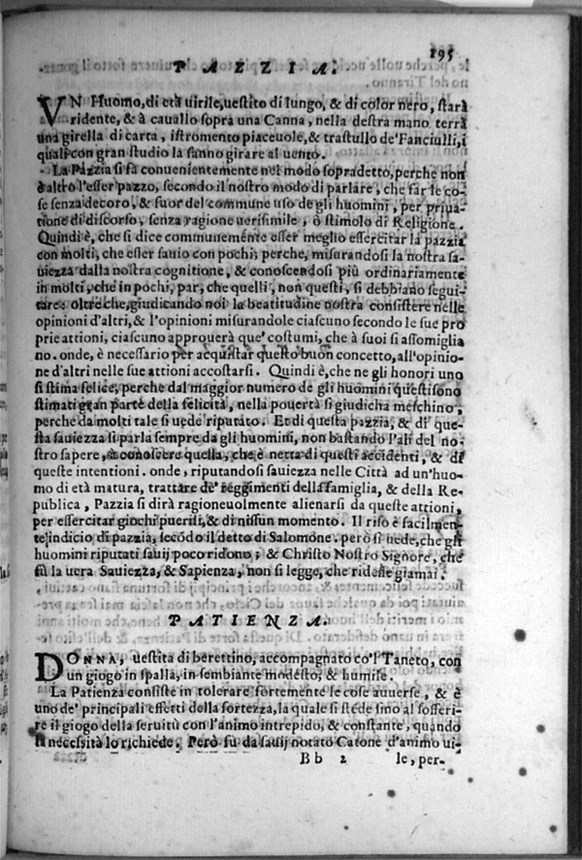 195
PAZZIA.
VN Huomo, di età uirile, uestito di lungo, & di color nero, starà
ridente, & à cauallo sopra una Canna, nella destra mano terrà
una girella di carta, istromento piaceuole, & trastullo de'Fanciulli, i
quali con gran studio la fanno girare al uento.
La Pazzia si fa conuenientemente nel modo sopradetto, perche non
è altro l'esser pazzo, secondo il nostro modo di parlare, che far le co-
se senza decoro, & fuor del commune uso de gli huomini, per priua-
tione di discorso, senza ragione uerisimile, ò stimolo di Religione.
Quindi è, che si dice communemente esser meglio essercitar la pazzia
con molti, che esser sauio con pochi; perche, misurandosi la nostra sa-
uiezza dalla nostra cognitione, & conoscendosi più ordinariamente
in molti, che in pochi, par, che quelli, non questi, si debbiano segui-
tare: oltre che, giudicando noi la beatitudine nostra consistere nelle
opinioni d'altri, & l'opinioni misurandole ciascuno secondo le sue pro
prie attioni, ciascuno approuerà que' costumi, che à suoi si assomiglia
no. onde, è necessario per acquistar questo buon concetto, all'opinio-
ne d'altri nelle sue attioni accostarsi. Quindi è, che ne gli honori uno
si stima felice, perche dal maggior numero de gli huomini questi sono
stimati gran parte della felicità, nella pouertà si giudicha meschino,
perche da molti tale si uede riputato. Et di questa pazzia, & di que-
sta sauiezza si parla sempre da gli huomini, non bastando l'ali del no-
stro sapere, à conoscere quella, che è netta di questi accidenti, & di
queste intentioni. onde, riputandosi sauiezza nelle Città ad un'huo-
mo di età matura, trattare de' reggimenti della famiglia, & della Re-
publica, Pazzia si dirà ragioneuolmente alienarsi da queste attioni,
per essercitar giochi puerili, & di nissun momento. Il riso è facilmen-
te indicio di pazzia, secódo il detto di Salomone. però si uede, che gli
huomini riputati sauij poco ridono; & Christo Nostro Signore, che
fù la uera Sauiezza, & Sapienza, non si legge, che ridesse giamai.
PATIENZA.
DONNA, uestita di berettino, accompagnato co'l Taneto, con
un giogo in spalla, in sembiante modesto, & humile.
La Patienza consiste in tolerare fortemente le cose auuerse, & è
uno de' principali effetti della fortezza, la quale si stēde sino al sofferi-
re il giogo della seruitù con l'animo intrepido, & constante, quando
la necessità lo richiede. Però fu da sauij notato Catone d'animo ui-
B b 2 le, per-